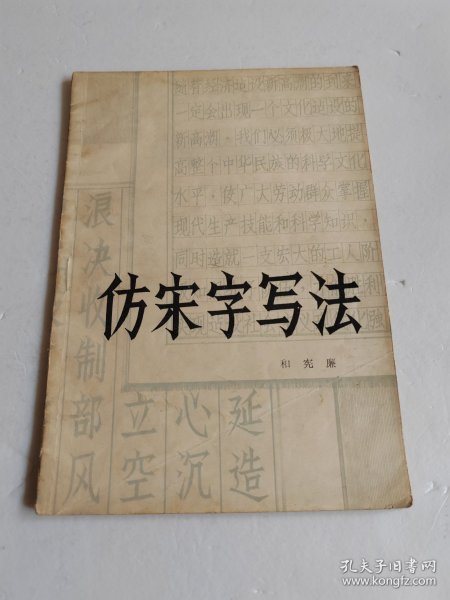 随着经济建设新高潮的到来
一定会出现一个文化建设的
新高潮。我们必须极大地提
高整个中华民族的科学文化
水平，使广大劳动群众掌握
现代生产技能和科学知识，
同时造就一支宏大的工人阶
仿宋字写法
和宪廉
浪决收制部风
立空
心沉
延造
孔夫子旧书网
www.kongfz.com